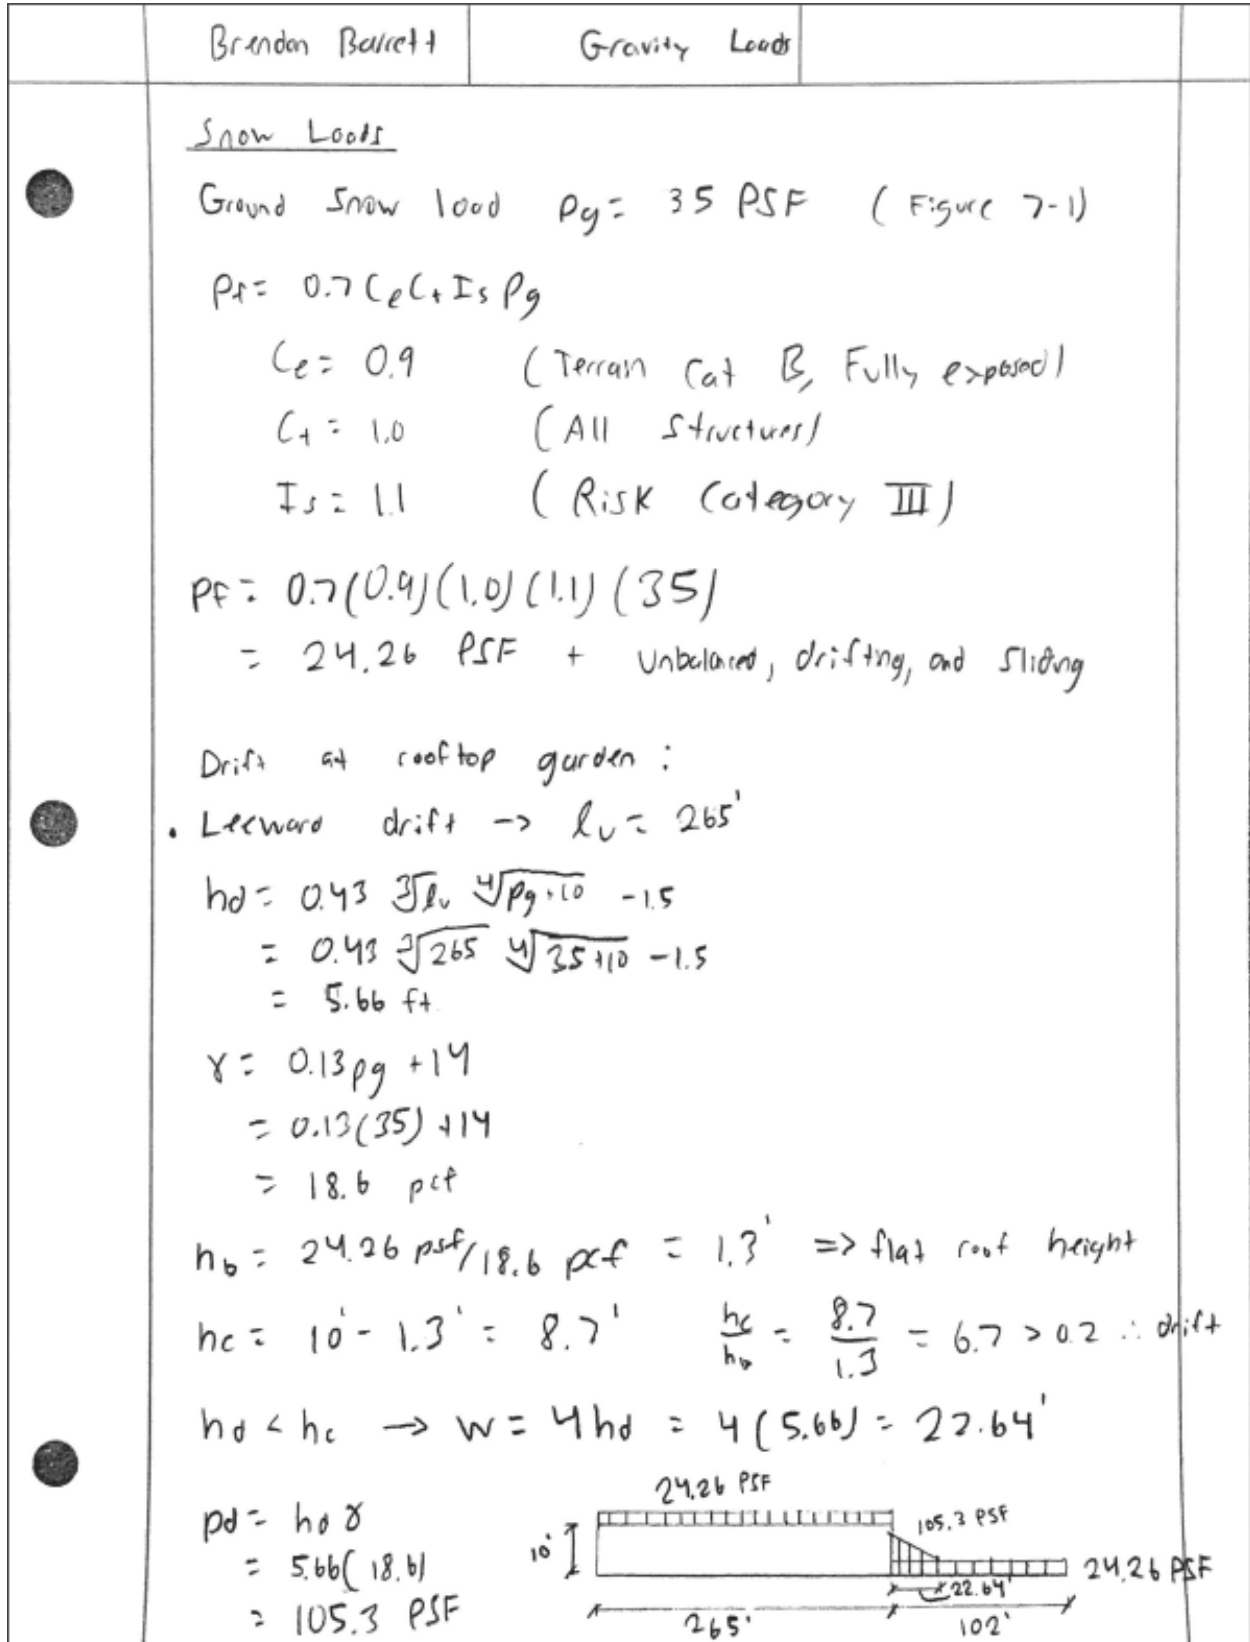 Brendan Barrett
Gravity Loads
Snow Loads
Ground Snow load pg = 35 PSF (Figure 7-1)
Pf = 0.7 Ce Ct Is Pg
Ce = 0.9 (Terrain Cat B, Fully exposed)
Ct = 1.0 (All Structures)
Is = 1.1 (Risk Category III)
Pf = 0.7(0.9)(1.0)(1.1)(35)
= 24.26 PSF + Unbalanced, drifting, and Sliding
Drift at rooftop garden :
• Leeward drift -> lu = 265'
hd = 0.43 ∛lu ∜pg+10 - 1.5
= 0.43 ∛265 ∜35+10 - 1.5
= 5.66 ft
γ = 0.13pg + 14
= 0.13(35) + 14
= 18.6 pcf
hb = 24.26 psf/18.6 pcf = 1.3' => flat roof height
hc = 10' - 1.3' = 8.7' hc/hb = 8.7/1.3 = 6.7 > 0.2 ∴ drift
hd < hc → w = 4hd = 4(5.66) = 22.64'
pd = hd γ
= 5.66(18.6)
= 105.3 PSF
24.26 PSF
105.3 PSF
10'
24.26 PSF
22.64'
265'
102'